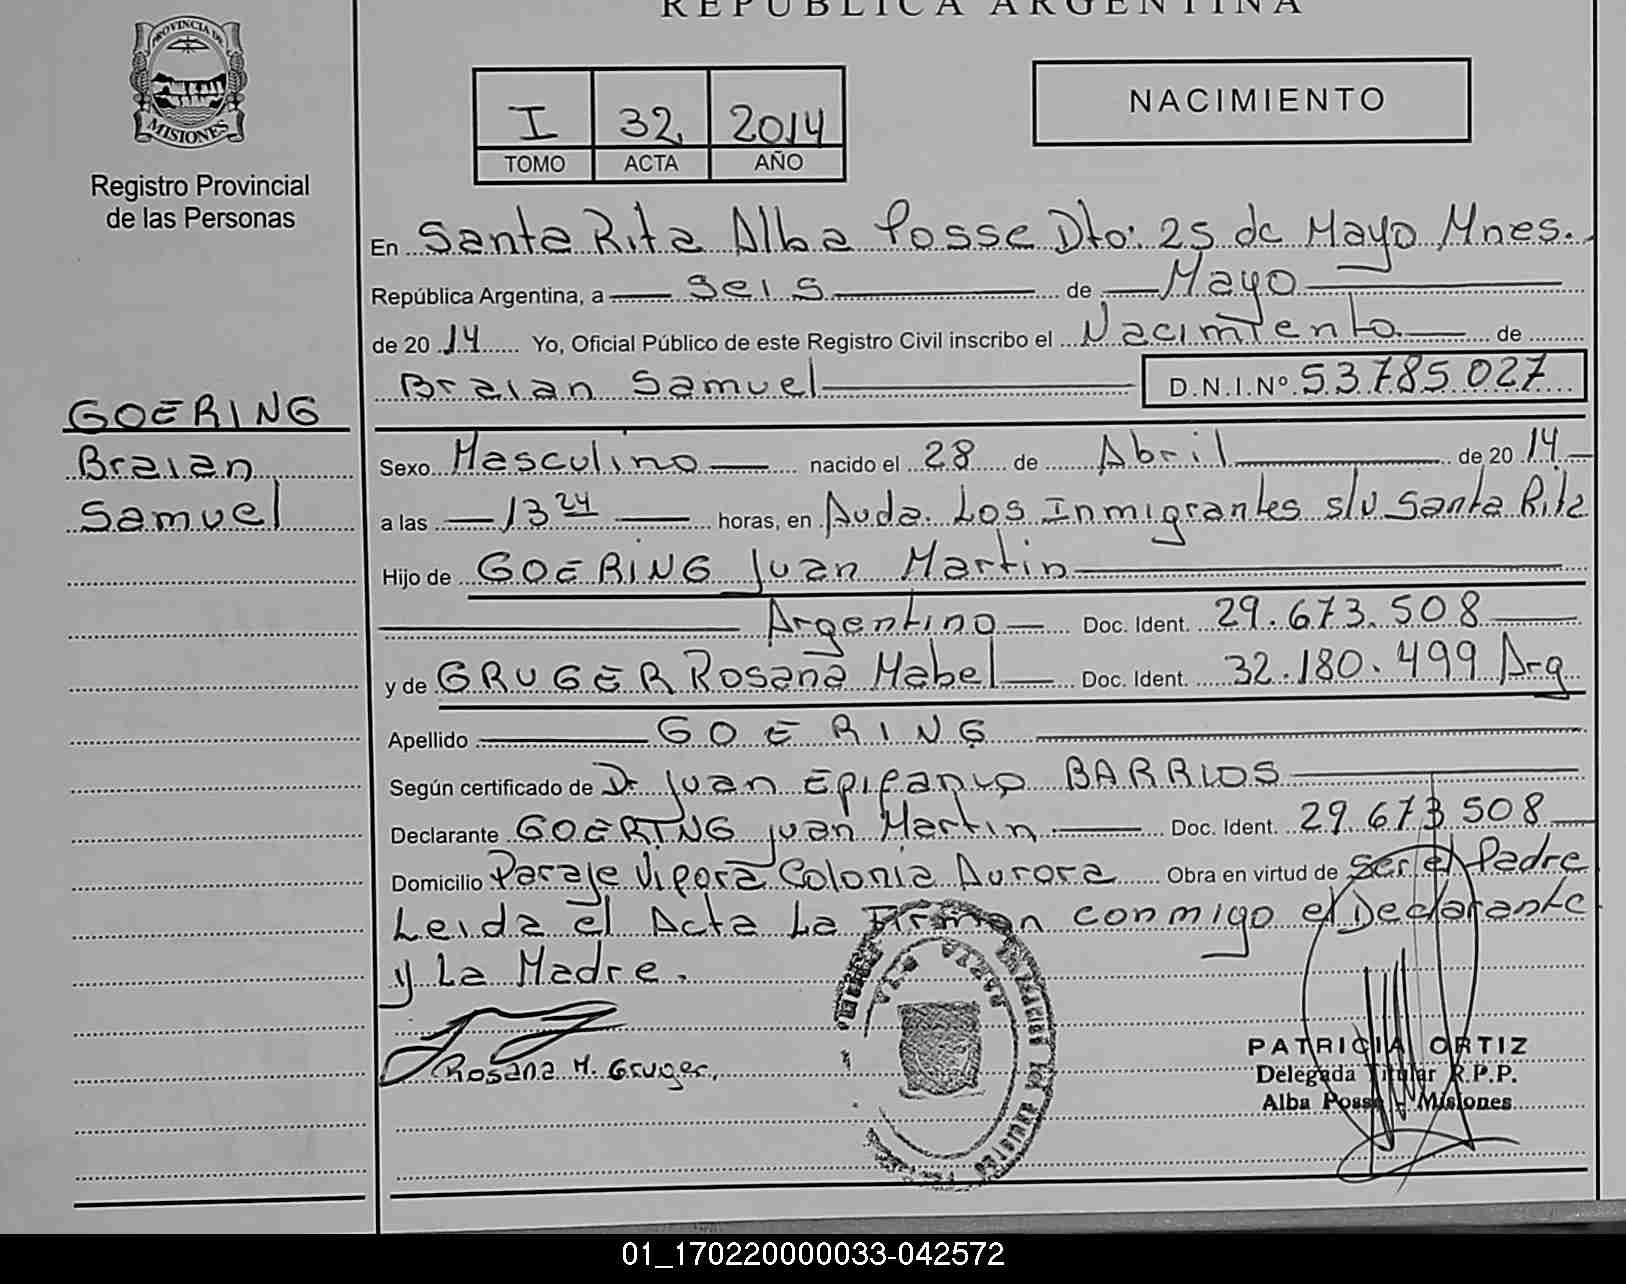 REPUBLICA ARGENTINA
PROVINCIA DE
MISIONES
Registro Provincial
de las Personas
I 32 2014
TOMO ACTA AÑO
NACIMIENTO
En Santa Rita Alba Posse Dto: 25 de Mayo Mnes.
República Argentina, a seis de Mayo
de 2014 Yo, Oficial Público de este Registro Civil inscribo el Nacimiento de
Braian Samuel D.N.I.Nº 53785027
GOERING
Braian
Samuel
Sexo Masculino nacido el 28 de Abril de 2014
a las 13 24 horas, en Avda. Los Inmigrantes s/n Santa Rita
Hijo de GOERING Juan Martin
Argentino Doc. Ident. 29.673.508
y de GRUGER Rosana Mabel Doc. Ident. 32.180.499 Arg
Apellido GOERING
Según certificado de Dr Juan Epifanio BARRIOS
Declarante GOERING Juan Martin Doc. Ident. 29.673.508
Domicilio Paraje Vipora Colonia Aurora Obra en virtud de ser el Padre
Leida el Acta La Firman conmigo el Declarante
y La Madre.
Rosana M. Gruger.
PATRICIA ORTIZ
Delegada Titular R.P.P.
Alba Posse - Misiones
01_170220000033-042572